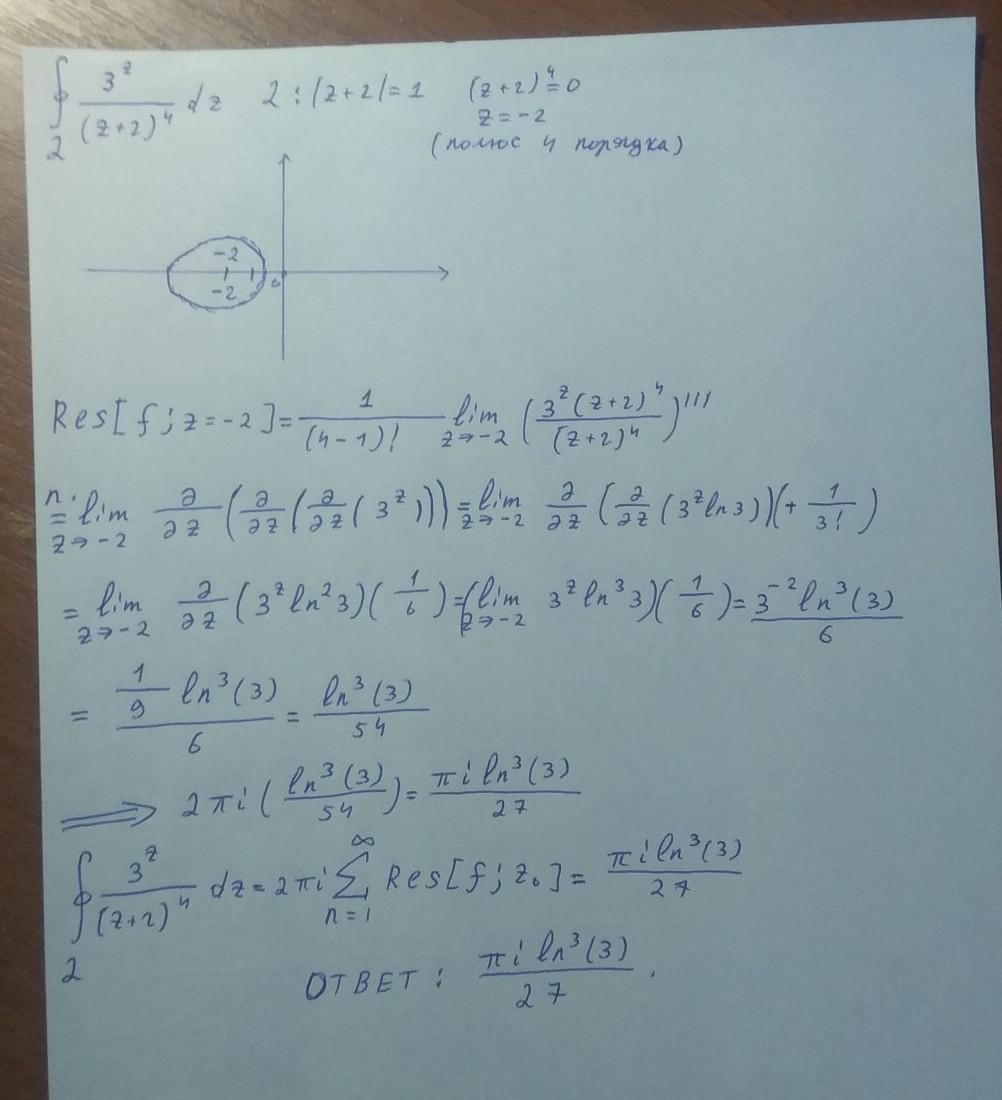 ∮ 3^z/(z+2)^4 dz 2 : |z+2| = 1 (z+2)^4 = 0
2 z = -2
(полюс 4 порядка)
-2
-2 0
Res[f; z = -2] = 1/(4-1)! lim z→-2 (3^z (z+2)^4/(z+2)^4)'''
= lim z→-2 ∂/∂z (∂/∂z (∂/∂z (3^z))) = lim z→-2 ∂/∂z (∂/∂z (3^z ln3)) (+ 1/3!)
= lim z→-2 ∂/∂z (3^z ln^2 3)(1/6) = (lim z→-2 3^z ln^3 3)(1/6) = 3^-2 ln^3(3)/6
= 1/9 ln^3(3)/6 = ln^3(3)/54
⟹ 2πi (ln^3(3)/54) = πi ln^3(3)/27
∮ 3^z/(z+2)^4 dz = 2πi ∑ n=1 ∞ Res[f; z₀] = πi ln^3(3)/27
2
ОТВЕТ : πi ln^3(3)/27 .